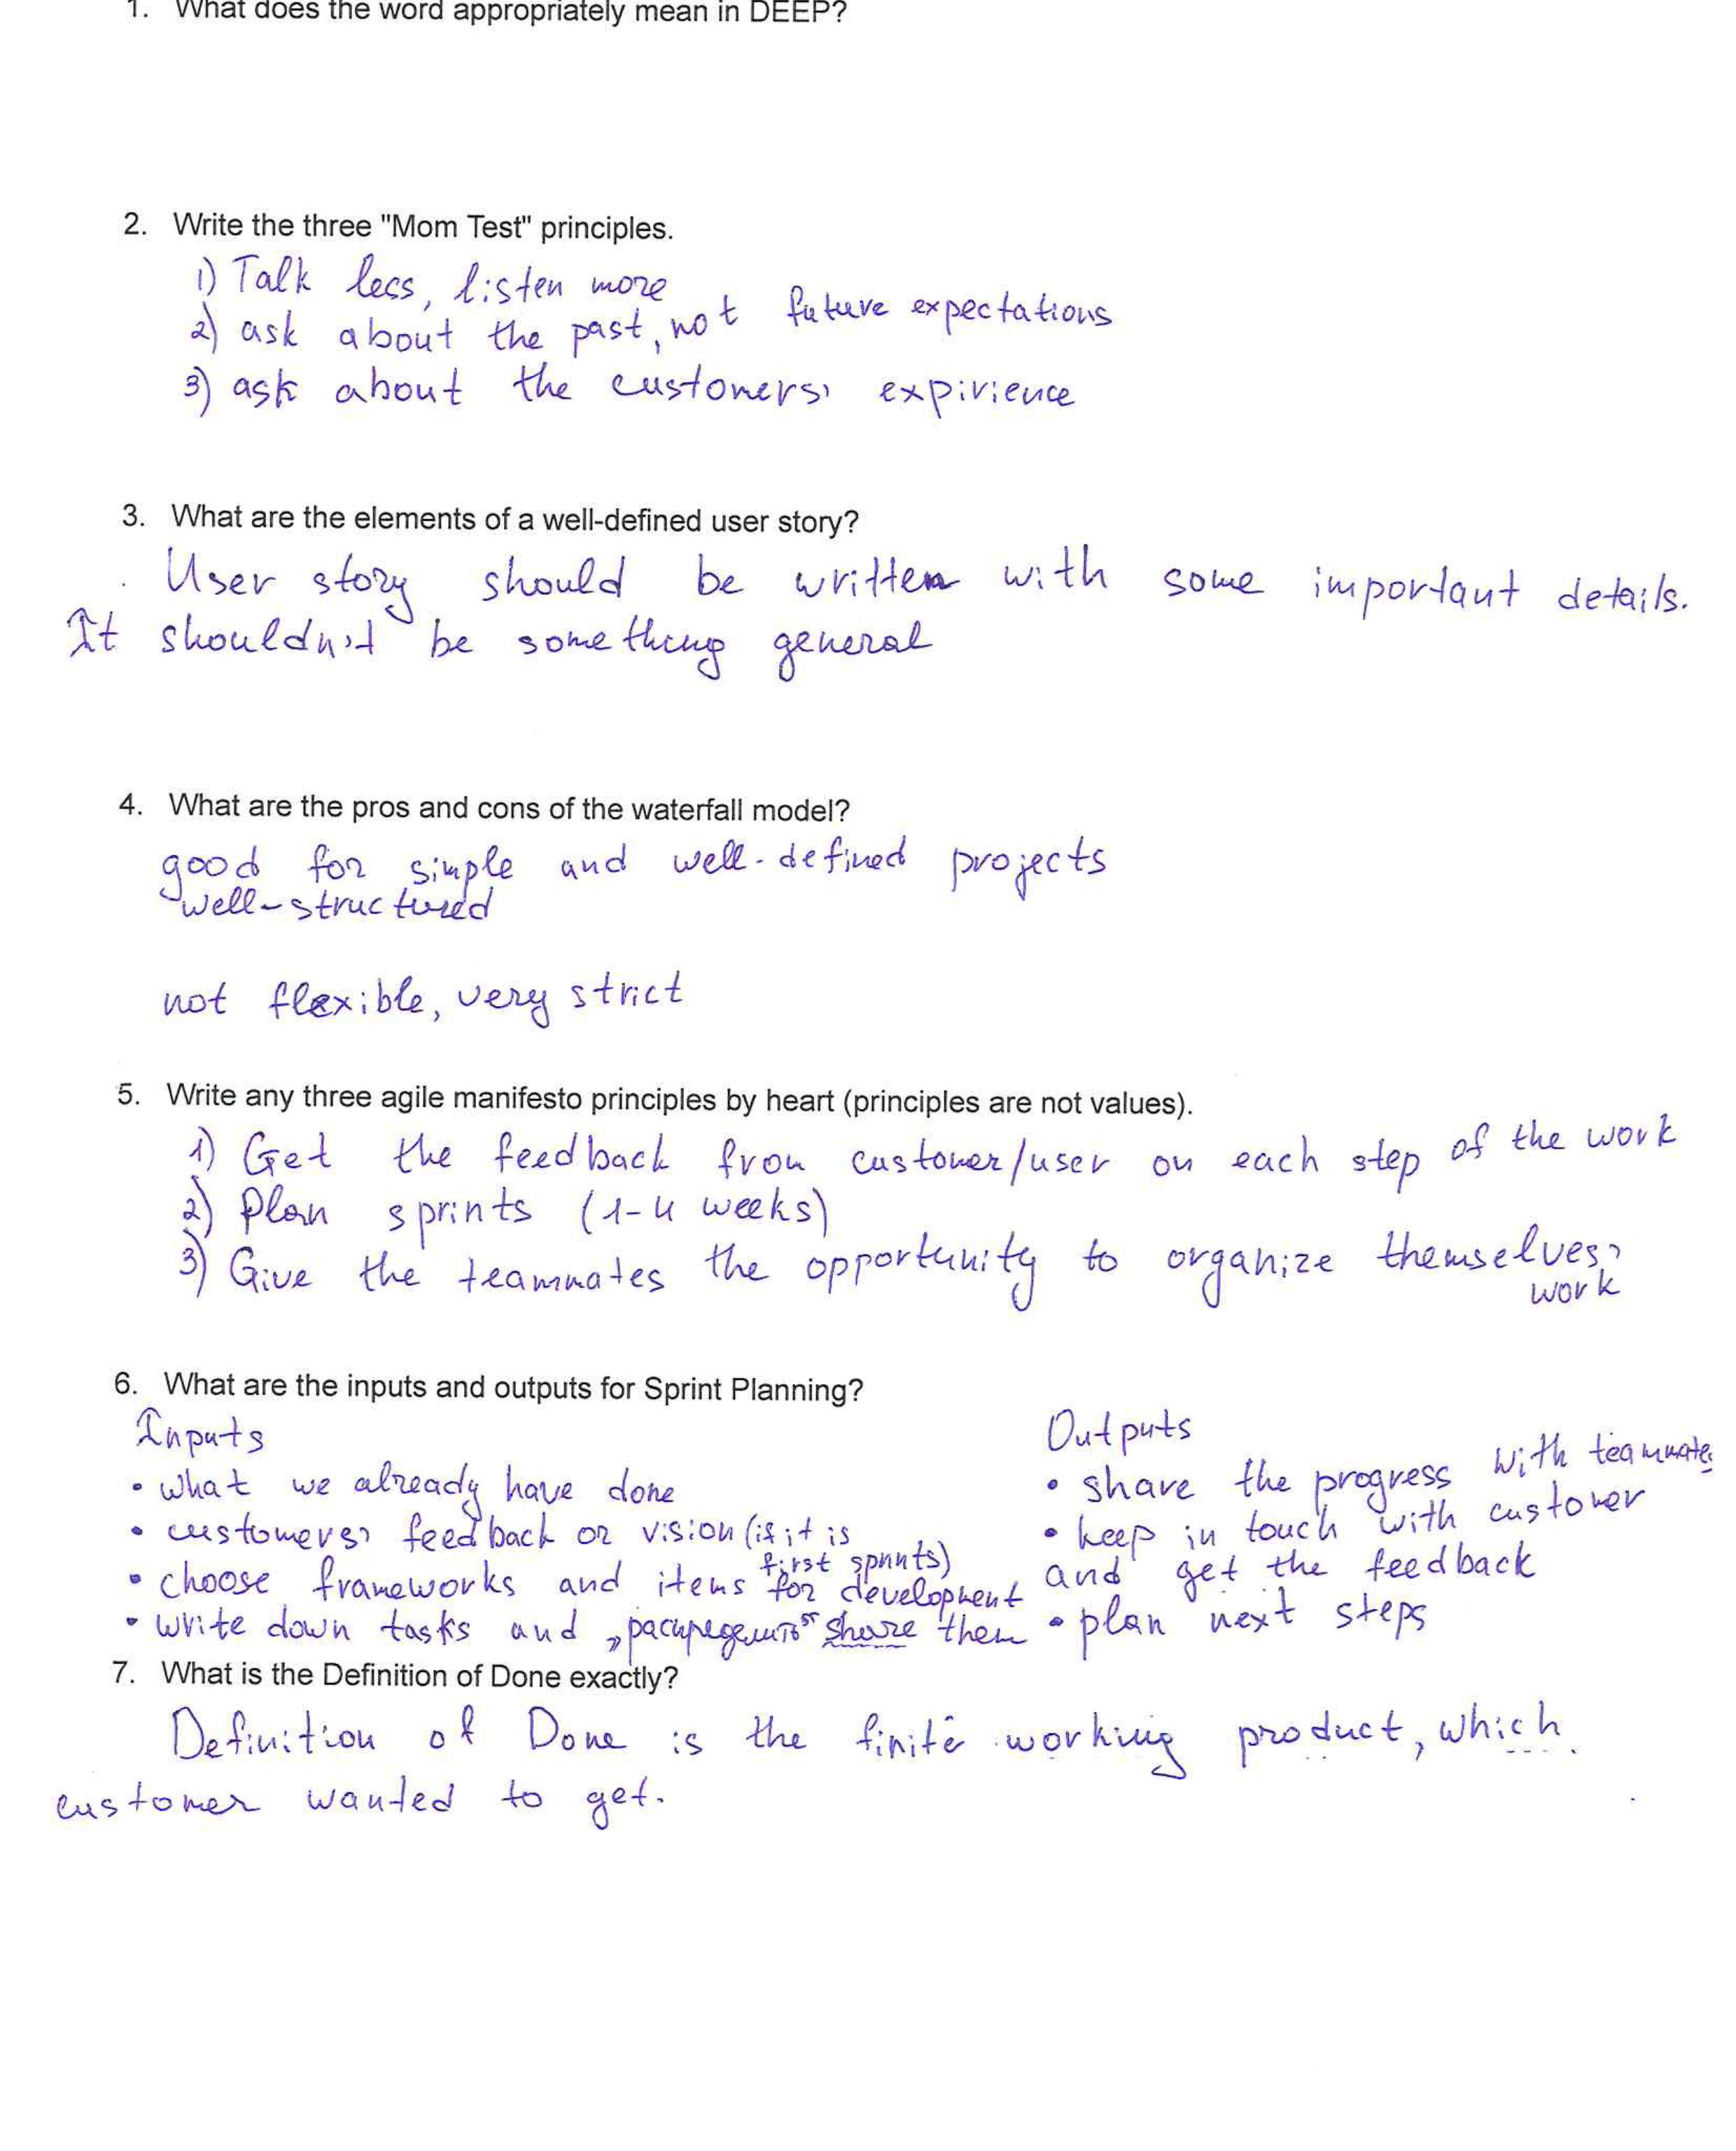 1. What does the word appropriately mean in DEEP?
2. Write the three "Mom Test" principles.
1) Talk less, listen more
2) ask about the past, not future expectations
3) ask about the customers' expirience
3. What are the elements of a well-defined user story?
User story should be written with some important details.
It shouldn't be something general
4. What are the pros and cons of the waterfall model?
good for simple and well-defined projects
well-structured
not flexible, very strict
5. Write any three agile manifesto principles by heart (principles are not values).
1) Get the feedback from customer/user on each step of the work
2) Plan sprints (1-4 weeks)
3) Give the teammates the opportunity to organize themselves'
work
6. What are the inputs and outputs for Sprint Planning?
Inputs
• what we already have done
• customers' feedback or vision (if it is
first sprints)
• choose frameworks and items for development
• write down tasks and „распределить“ share them
Outputs
• share the progress with teammates
• keep in touch with customer
and get the feedback
• plan next steps
7. What is the Definition of Done exactly?
Definition of Done is the finite working product, which
customer wanted to get.